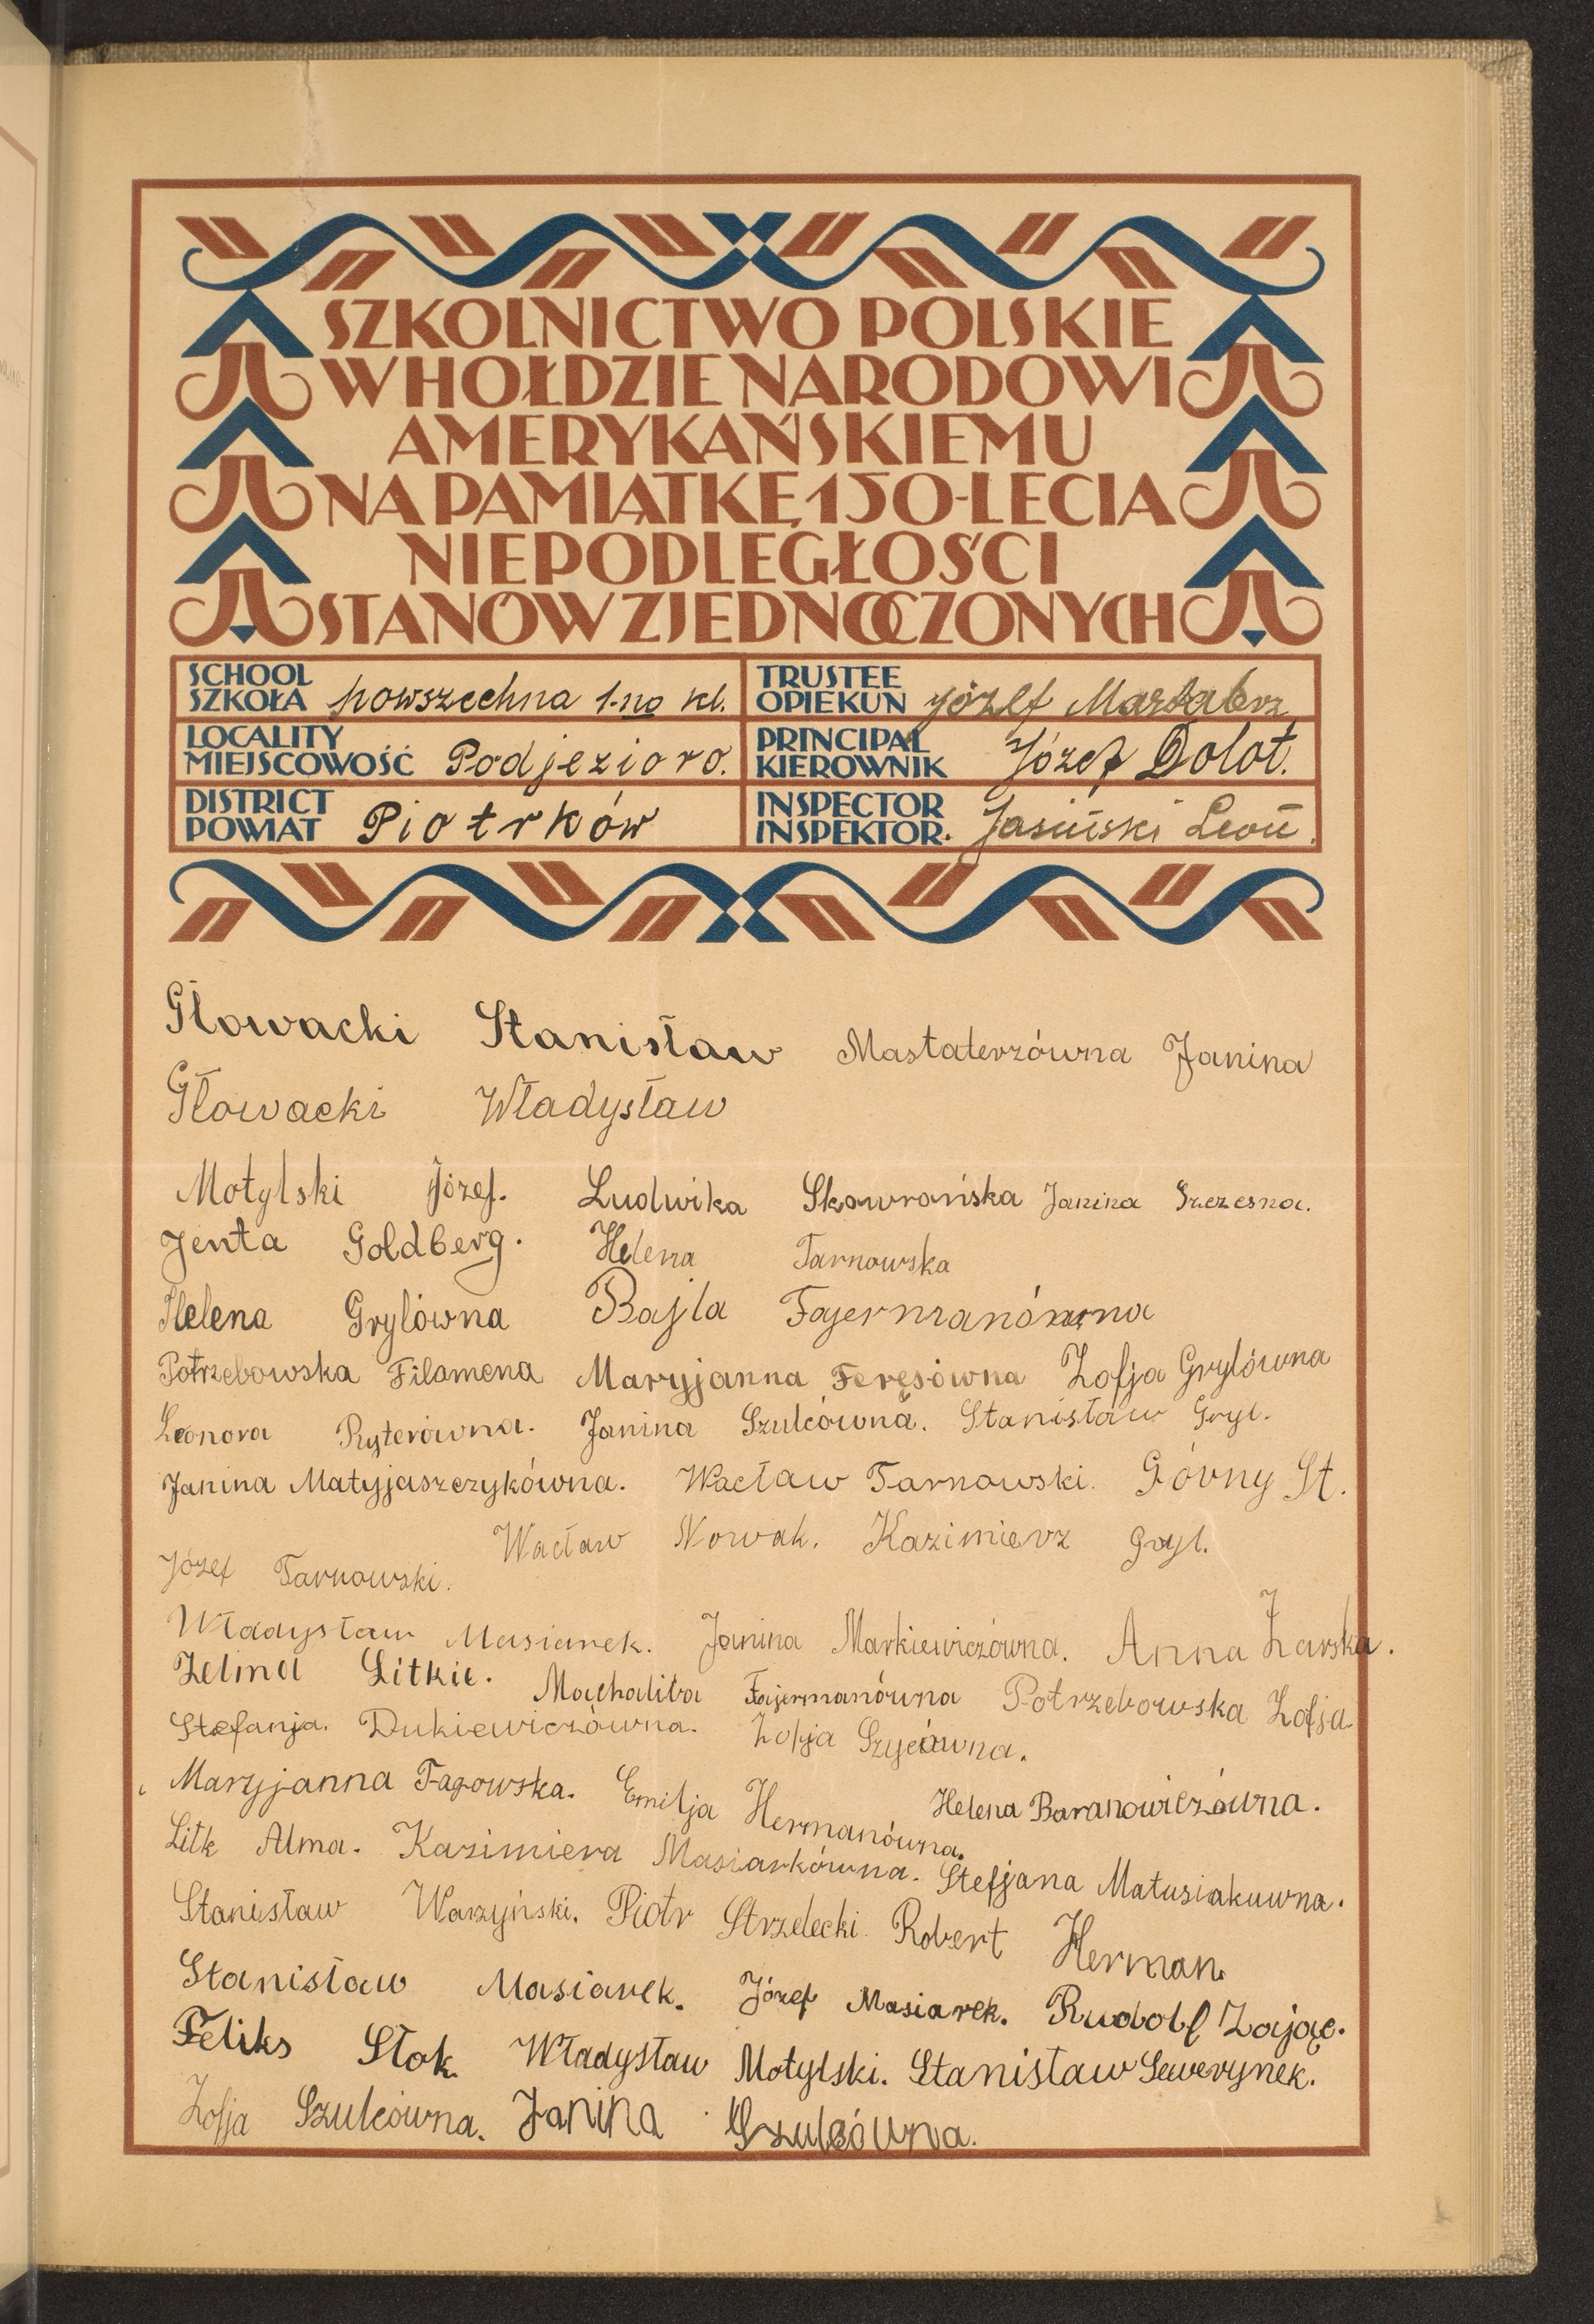 SZKOLNICTWO POLSKIE
W HOŁDZIE NARODOWI
AMERYKAŃSKIEMU
NA PAMIĄTKĘ 150-LECIA
NIEPODLEGŁOŚCI
STANÓW ZJEDNOCZONYCH
SCHOOL
SZKOŁA powszechna 1-no kl.
TRUSTEE
OPIEKUN Józef
LOCALITY
MIEJSCOWOŚĆ Podjezioro.
PRINCIPAL
KIEROWNIK Józef Dolot.
DISTRICT
POWIAT Piotrków
INSPECTOR
INSPEKTOR. Jasiński Leon.
Głowacki Stanisław Mastalerzówna Janina
Głowacki Władysław
Motylski Józef. Ludwika Skowrońska Janina Szczesna.
Jenta Goldberg. Helena Tarnowska
Helena Grylówna Bajla Fajermanówna
Potrzebowska Filamena Maryjanna Feręsówna Zofja Grylówna
Leonora Ryterówna. Janina Szulcówna. Stanisław Gryl.
Janina Matyjaszczykówna. Wacław Tarnowski. Góvny St.
Józef Tarnowski. Wacław Nowak. Kazimierz Gryl.
Władysław Masiarek. Janina Markiewiczówna. Anna Żarska.
Zelma Litkie. Machalita Fajermanówna Potrzebowska Zofja.
Stefanja. Dukiewiczówna. Zofja Szycówna.
Maryjanna Fagowska. Emilja Hermanówna. Helena Baranowiczówna.
Litk Alma. Kazimiera Masiarkówna. Stefjana Matusiakuwna.
Stanisław Warzyński. Piotr Strzelecki. Robert Herman
Stanisław Masiarek. Józef Masiarek. Rudolf Zając.
Feliks Stok. Władysław Motylski. Stanisław Sewerynek.
Zofja Szulcówna. Janina Szulcówna.